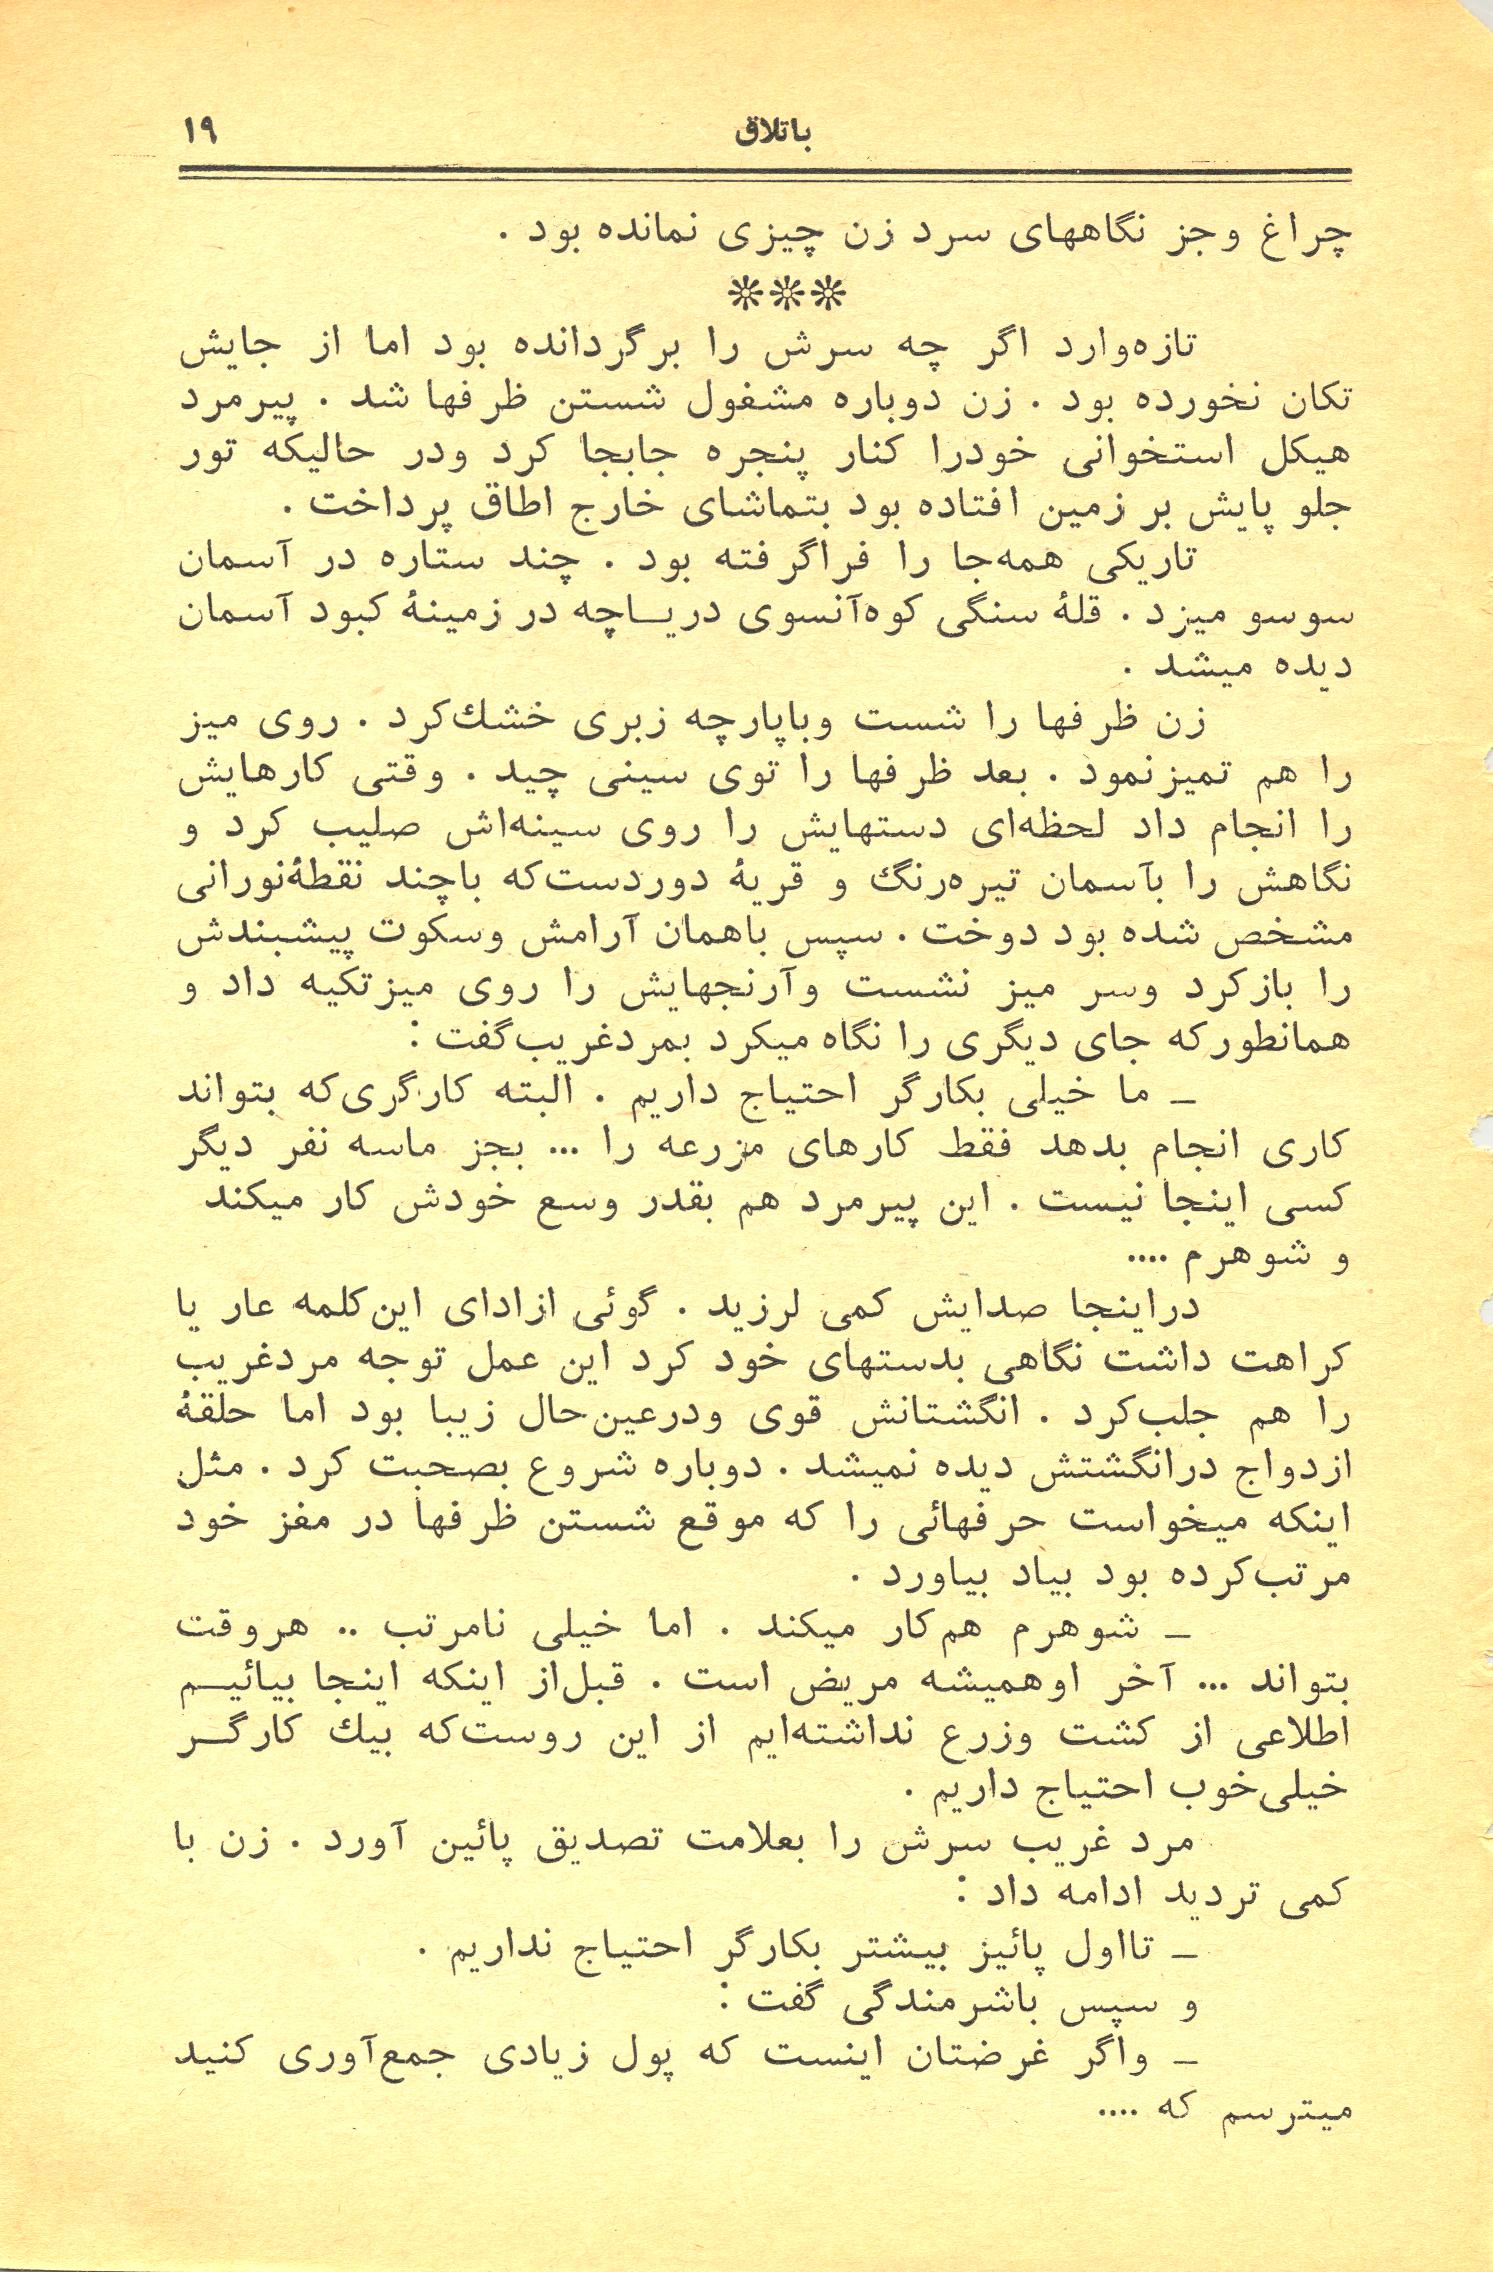 باتلاق ۱۹
چراغ وجز نگاههای سرد زن چیزی نمانده بود .
***
تازه‌وارد اگر چه سرش را برگردانده بود اما از جایش
تکان نخورده بود . زن دوباره مشغول شستن ظرفها شد . پیرمرد
هیکل استخوانی خودرا کنار پنجره جابجا کرد ودر حالیکه تور
جلو پایش بر زمین افتاده بود بتماشای خارج اطاق پرداخت .
تاریکی همه‌جا را فراگرفته بود . چند ستاره در آسمان
سوسو میزد . قلهٔ سنگی کوه‌آنسوی دریـاچه در زمینهٔ کبود آسمان
دیده میشد .
زن ظرفها را شست وباپارچه زبری خشك‌کرد . روی میز
را هم تمیزنمود . بعد ظرفها را توی سینی چید . وقتی کارهایش
را انجام داد لحظه‌ای دستهایش را روی سینه‌اش صلیب کرد و
نگاهش را بآسمان تیره‌رنگ و قریهٔ دوردست‌که باچند نقطهٔ‌نورانی
مشخص شده بود دوخت . سپس باهمان آرامش وسکوت پیشبندش
را بازکرد وسر میز نشست وآرنجهایش را روی میزتکیه داد و
همانطورکه جای دیگری را نگاه میکرد بمردغریب‌گفت :
ـ ما خیلی بکارگر احتیاج داریم . البته کارگری‌که بتواند
کاری انجام بدهد فقط کارهای مزرعه را ... بجز ماسه نفر دیگر
کسی اینجا نیست . این پیرمرد هم بقدر وسع خودش کار میکند
و شوهرم ....
دراینجا صدایش کمی لرزید . گوئی ازادای این‌کلمه عار یا
کراهت داشت نگاهی بدستهای خود کرد این عمل توجه مردغریب
را هم جلب‌کرد . انگشتانش قوی ودرعین‌حال زیبا بود اما حلقهٔ
ازدواج درانگشتش دیده نمیشد . دوباره شروع بصحبت کرد . مثل
اینکه میخواست حرفهائی را که موقع شستن ظرفها در مغز خود
مرتب‌کرده بود بیاد بیاورد .
ـ شوهرم هم‌کار میکند . اما خیلی نامرتب .. هروقت
بتواند ... آخر اوهمیشه مریض است . قبل‌از اینکه اینجا بیائیـم
اطلاعی از کشت وزرع نداشته‌ایم از این روست‌که بیك کارگـر
خیلی‌خوب احتیاج داریم .
مرد غریب سرش را بعلامت تصدیق پائین آورد . زن با
کمی تردید ادامه داد :
ـ تااول پائیز بیشتر بکارگر احتیاج نداریم .
و سپس باشرمندگی گفت :
ـ واگر غرضتان اینست که پول زیادی جمع‌آوری کنید
میترسم که ....